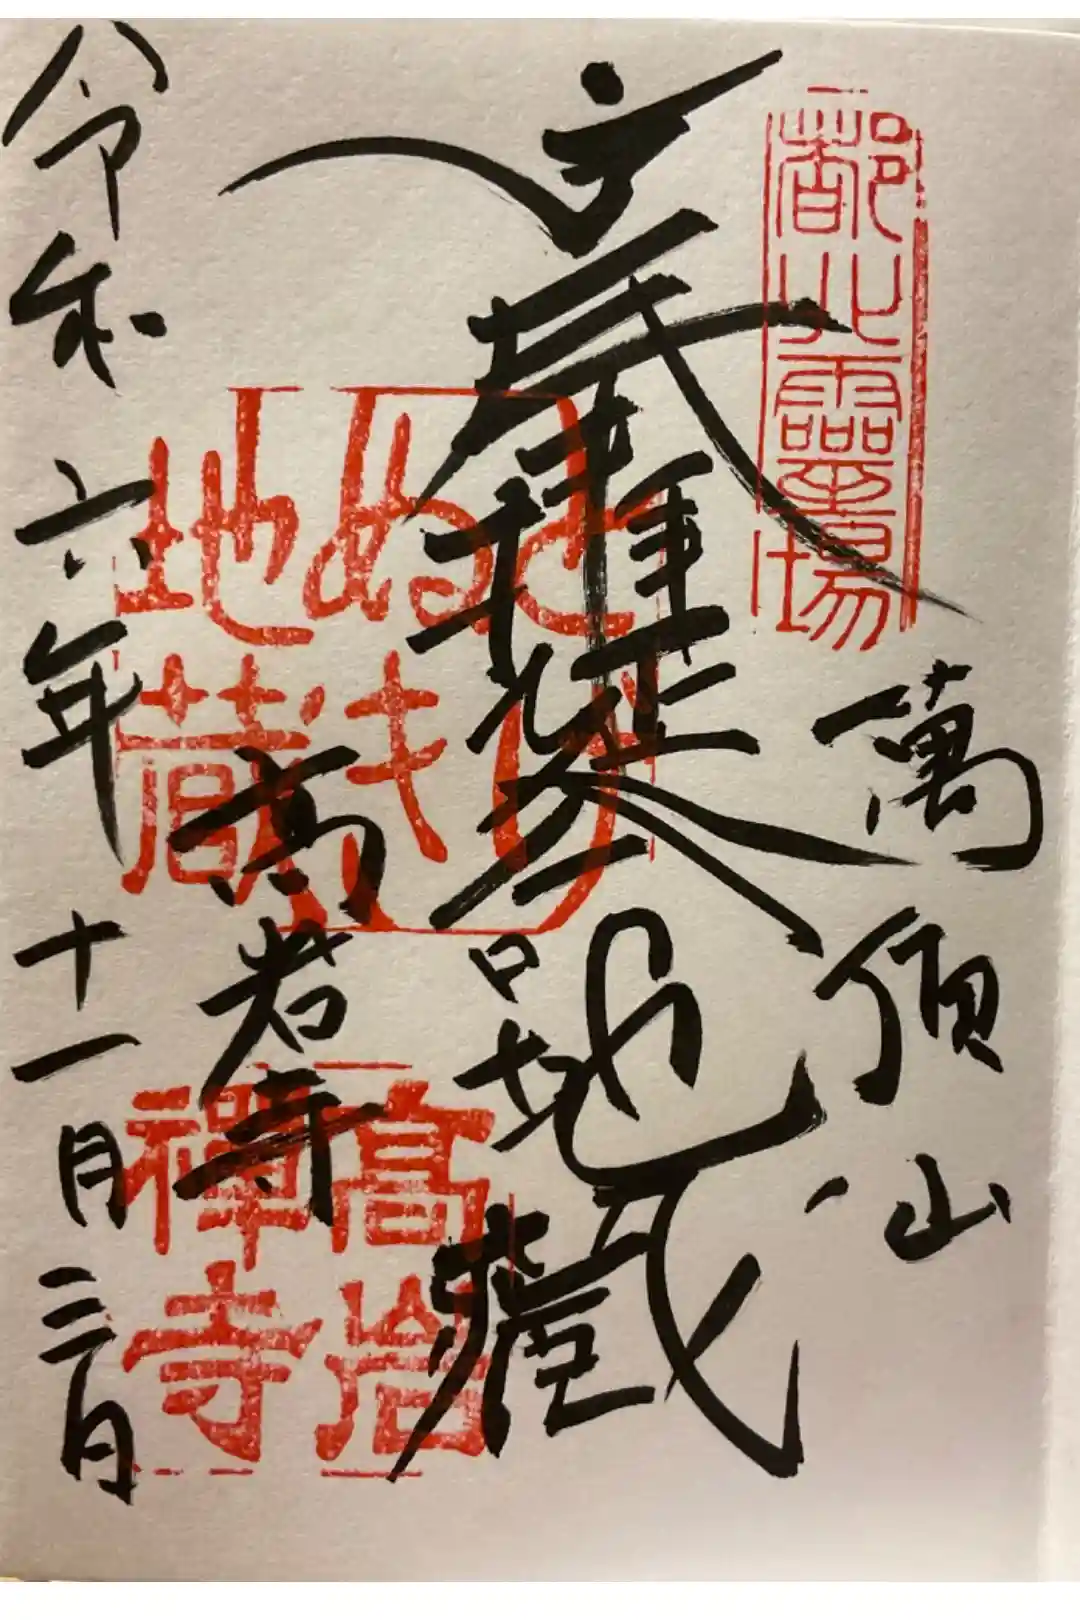 都北靈場
萬頂山
地藏
とげぬき地蔵
高岩寺
高岩禪寺
令和六年十一月三日